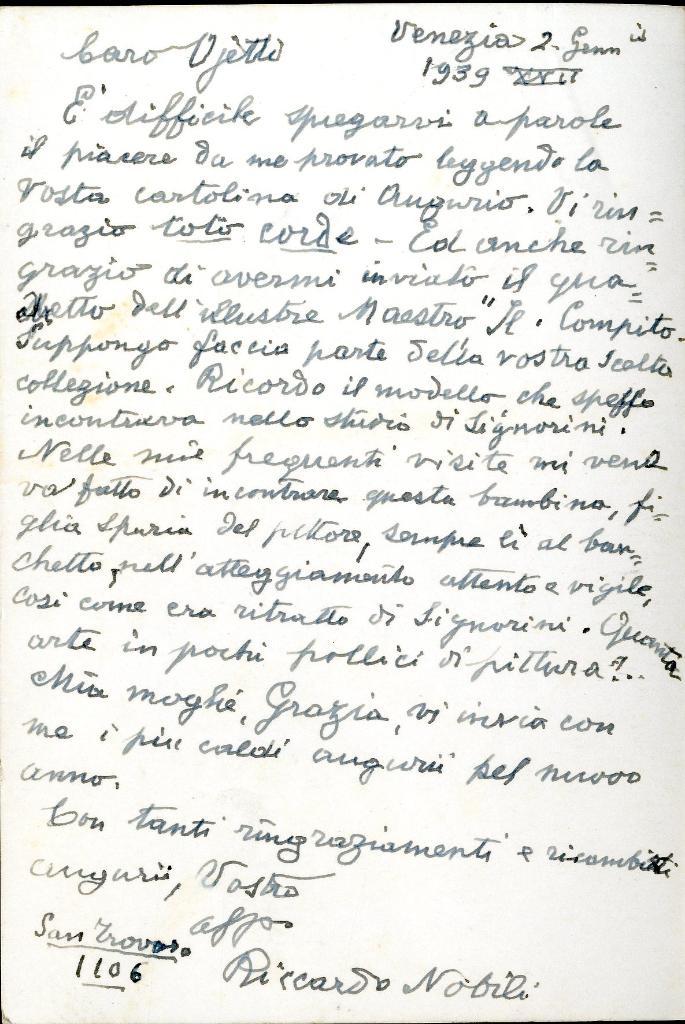 Venezia 2. Genn io
Caro Ojetti
1939 XVII
E' difficile spiegarvi a parole
il piacere da me provato leggendo la
vosta cartolina di Augurio. Vi rin=
grazio toto corde - Ed anche rin=
grazio di avermi inviato il qua=
dretto dell'illustre Maestro "Il Compito.
Suppongo faccia parte della vostra scelta
collezione. Ricordo il modello che spesso
incontravo nello studio di Signorini.
Nelle mie frequenti visite mi veni
va fatto di incontrare questa bambina, fi=
glia spuria del pittore, sempre lì al ban=
chetto, nell'atteggiamento attento e vigile,
così come era ritratta di Signorini. Quanta
arte in pochi pollici di pittura?..
Mia moghe, Grazia, vi invia con
me i più caldi augurii pel nuovo
anno.
Con tanti ringraziamenti e ricambiati
augurii, Vostro
affo
San Trovaso
1106
Riccardo Nobili